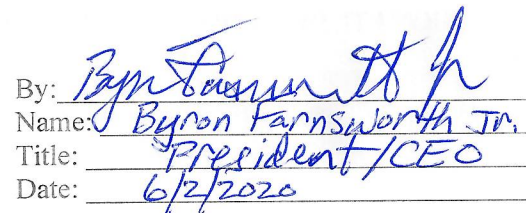 By: Byron Farnsworth Jr
Name: Byron Farnsworth Jr.
Title: President/CEO
Date: 6/2/2020